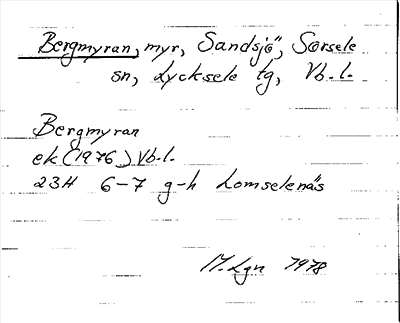 Bergmyran, myr, Sandsjö, Sorsele
sn, Lycksele lg, Vb.l.
Bergmyran
ek (1976) Vb.l.
23H 6-7 g-h Lomselenäs
M.Lgn 1978